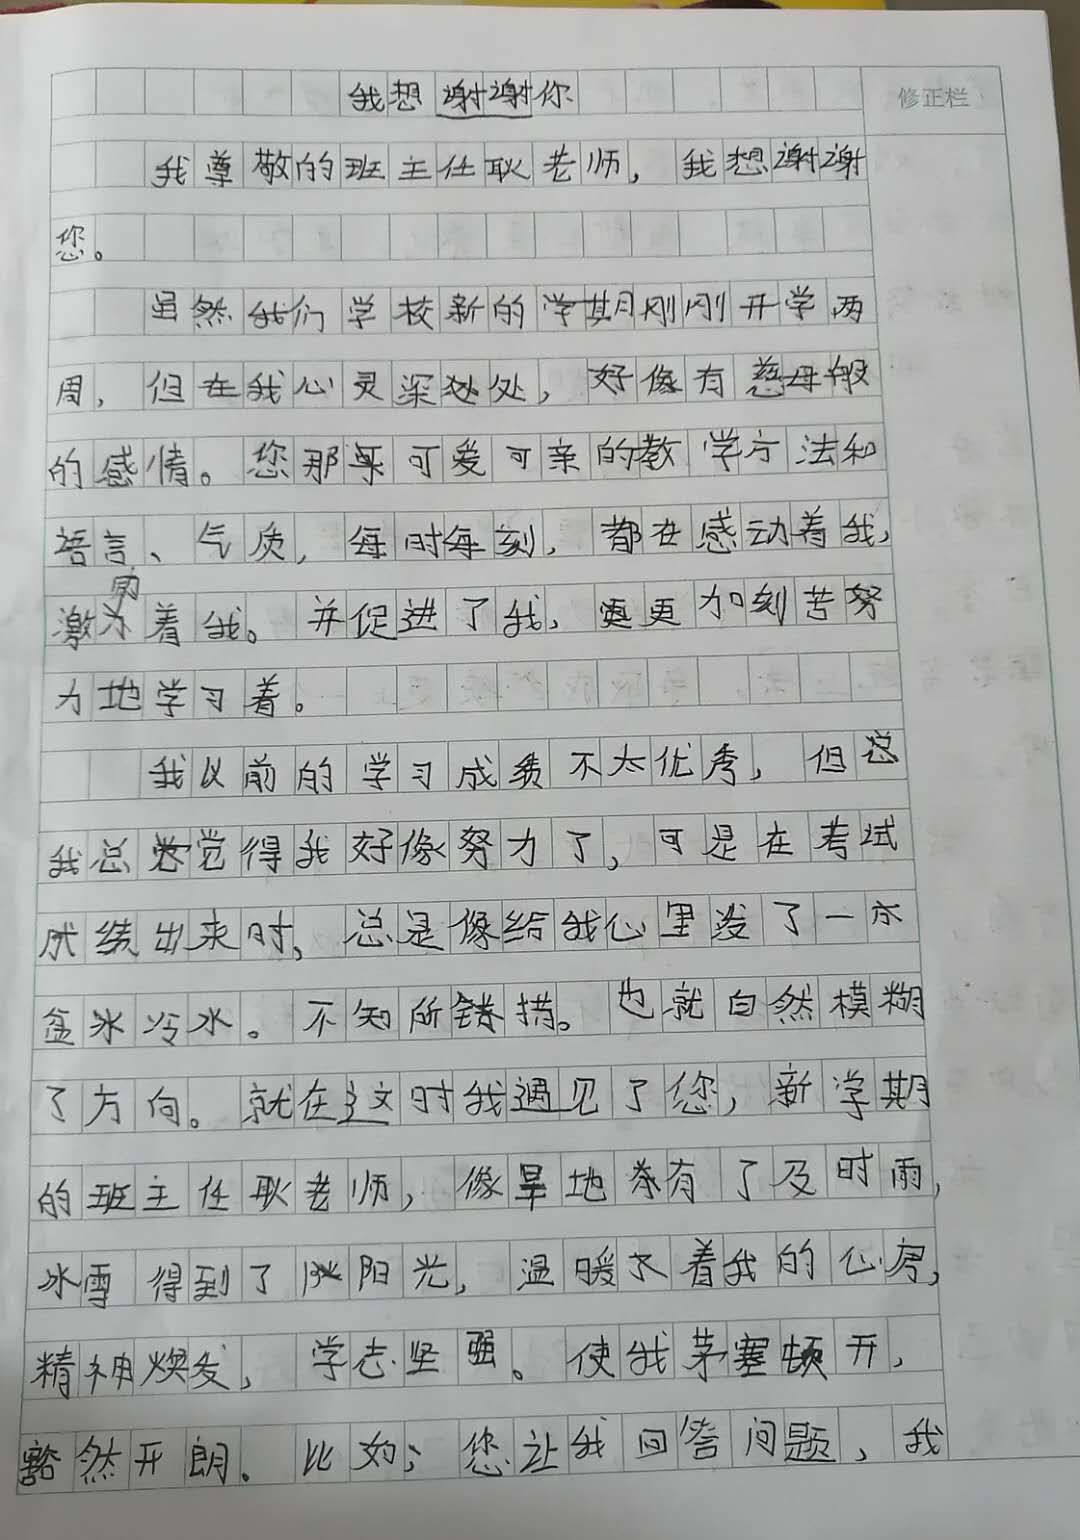 我想谢谢你
修正栏
我尊敬的班主任耿老师，我想谢谢
您。
虽然我们学校新的学期刚刚开学两
周，但在我心灵深处处，好像有慈母般
的感情。您那可爱可亲的教学方法和
语言、气质，每时每刻，都在感动着我，
激励着我。并促进了我，更加刻苦努
力地学习着。
我以前的学习成绩不太优秀，但
我总觉得我好像努力了，可是在考试
成绩出来时，总是像给我心里泼了一
盆冰冷水。不知所措。也就自然模糊
了方向。就在这时我遇见了您，新学期
的班主任耿老师，像旱地有了及时雨，
冰雪得到了阳光，温暖着我的心房，
精神焕发，学志坚强。使我茅塞顿开，
豁然开朗。比如；您让我回答问题，我